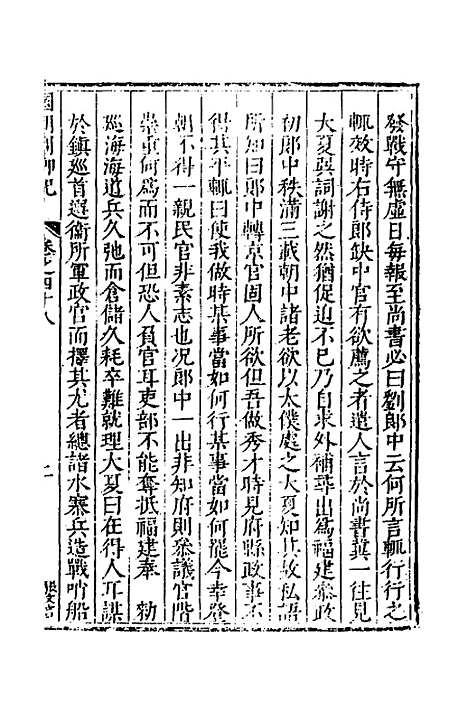 發戰守無虛日每報至尚書必曰劉郎中云何所言輒行行之
輒效時右侍郎缺中官有欲薦之者遣人言於尚書冀一往見
大夏巽詞謝之然猶促迫不已乃自求外補華出為福建叅政
初郎中秩滿三載朝中諸老欲以太僕處之大夏知其故私語
所知曰郎中轉京官固人所欲但吾做秀才時見府縣政事不
得其平輒曰使我做時某事當如何行某事當如何罷今幸登
朝不得一親民官非素志也况郎中一出非知府則叅議官階
崇重何為而不可但恐人負官耳吏部不能奪抵福建奉 勅
廵海海道兵久弛而倉儲久耗卒難就理大夏曰在得人耳謀
於鎮廵首選衛所軍政官而擇其尤者總諸水寨兵造戰哨船
國朝列卿紀 卷之四十八